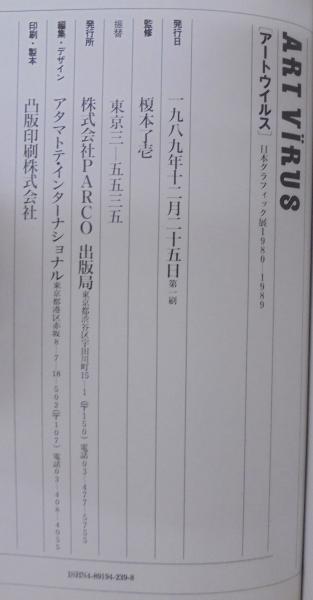 ART VÏRUS
［アートウイルス］ 日本グラフィック展1980-1989
発行日 一九八九年十二月二十五日 第一刷
監修 榎本了壱
振替 東京三—五五三五
発行所 株式会社PARCO出版局 東京都渋谷区宇田川町15-1（〒150）電話03-477-5755
編集・デザイン アタマトテ・インターナショナル 東京都港区赤坂8-7-18-502（〒107）電話03-408-4055
印刷・製本 凸版印刷株式会社
ISBN4-89194-239-8